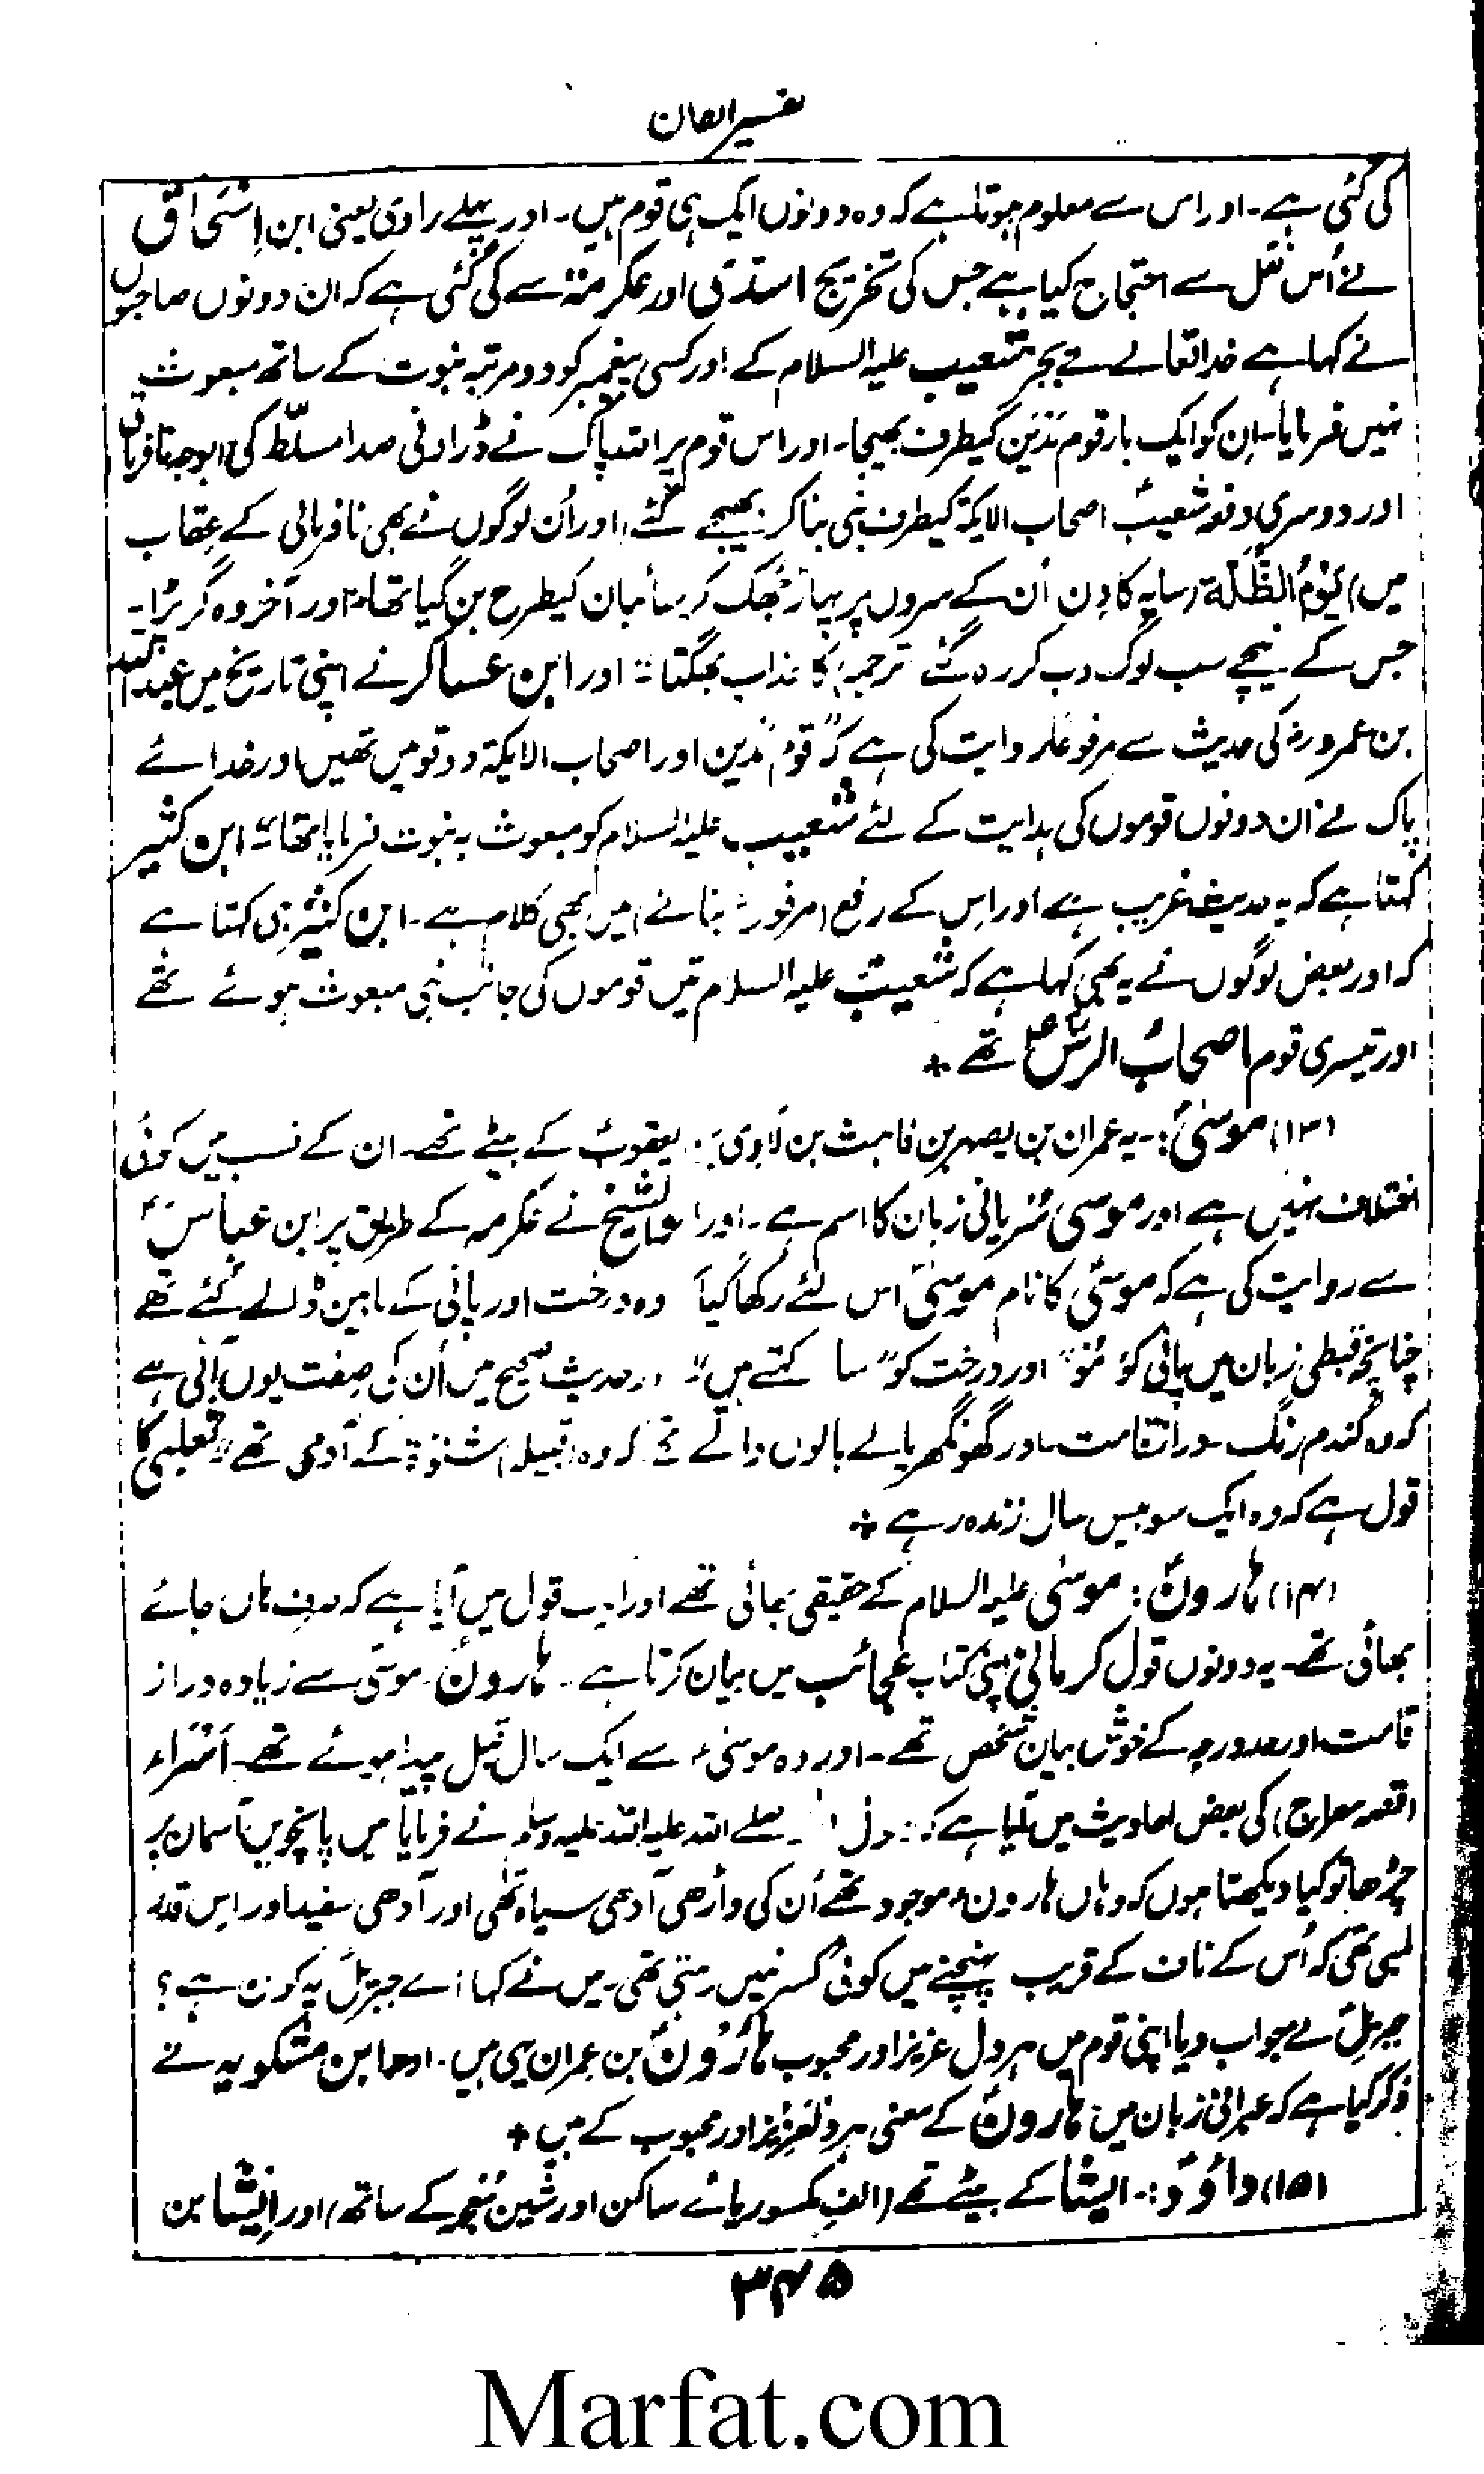 تفسیر اتقان
کی گئی ہے۔ اور اس سے معلوم ہوتا ہے کہ وہ دونوں ایک ہی قوم ہیں۔ اور پہلے راوی یعنی ابن اِسْحَاق
نے اُس نقل سے احتجاج کیا ہے جس کی تخریج السدّی اور عکرمۃؓ سے کی گئی ہے کہ ان دونوں صاحبوں
نے کہا ہے خدا تعالےٰ نے بجز شعیب علیہ السلام کے اور کسی پیغمبر کو دو مرتبہ نبوت کے ساتھ مبعوث
نہیں فرمایا۔ اِن کو ایک بار قوم مَدْیَن کیطرف بھیجا۔ اور اس قوم پر اللہ پاک نے ڈراونی صدا مسلّط کی (بوجہ نافرمانی
اور دوسری دفعہ شعیبؑ اصحاب الایکۃ کیطرف نبی بنا کر بھیجے گئے، اور اُن لوگوں نے بھی نافرمانی کے عِقاب
میں) یَوْمُ الظُّلَّة (سایہ کا دِن اُن کے سروں پر پہاڑ جُھک کر سائبان کیطرح بن گیا تھا، اور آخر وہ گر پڑا۔
جس کے نیچے سب لوگ دب کر رہ گئے ترجمہ) کا عذاب بھگتا" اور ابن عساکر نے اپنی تاریخ میں عبد اللہ
بن عمروؓ کی حدیث سے مرفوعاً روایت کی ہے کہ "قوم مدین اور اصحاب الایکۃ دو قومیں تھیں اور خدائے
پاک نے ان دونوں قوموں کی ہدایت کے لئے شعیب علیہ السلام کو مبعوث بہ نبوت فرمایا تھا" ابن کثیر
کہتا ہے کہ یہ حدیث غریب ہے اور اِس کے رفع (مرفوع بنانے) میں بھی کلام ہے۔ ابن کثیر ہی کہتا ہے
کہ اور بعض لوگوں نے یہ بھی کہا ہے کہ شعیبؑ علیہ السلام تین قوموں کی جانب نبی مبعوث ہوئے تھے
اور تیسری قوم اصحابُ الرسّ تھے ٭
(۱۳) موسیٰؑ:۔ یہ عمران بن یصہر بن فاہث بن لَاوِی بن یعقوبؑ کے بیٹے تھے۔ ان کے نسب میں کوئی
اختلاف نہیں ہے اور موسی سُریانی زبان کا اسم ہے۔ اور ابوالشیخ نے عکرمہ کے طریق پر ابن عباسؓ
سے روایت کی ہے کہ موسیٰؑ کا نام موسیٰؑ اس لئے رکھا گیا وہ درخت اور پانی کے مابین ڈالے گئے تھے
چنانچہ قبطی زبان میں پانی کو "مُو" اور درخت کو "سا" کہتے ہیں" اور حدیث صحیح میں اُن کی صِفت یوں آئی ہے
کہ وہ گندم رنگ۔ دراز قامت اور گھونگھریالے بالوں والے تھے کہ وہ (قبیلہ) شنوۃ کے آدمی تھے" ثعلبی کا
قول ہے کہ وہ ایک سو بیس سال زندہ رہے ٭
(۱۴) ہارونؑ: موسٰی علیہ السلام کے حقیقی بھائی تھے اور ایک قول میں آیا ہے کہ صرف ماں جائے
بھائی تھے۔ یہ دونوں قول کرمانی اپنی کتاب عجائب میں بیان کرتا ہے۔ ہارونؑ۔ موسٰی سے زیادہ دراز
قامت اور حد درجہ کے خوش بیان شخص تھے۔ اور وہ موسٰیؑ سے ایک سال قبل پیدا ہوئے تھے۔ اَسْراء
(قصہ معراج) کی بعض احادیث میں آیا ہے کہ رسول اللہ صلے اللہ علیہ اللہ علیہ وسلم نے فرمایا میں پانچویں آسمان پر
چڑھا تو کیا دیکھتا ہوں کہ وہاں ہارونؑ موجود تھے اُن کی داڑھی آدھی سیاہ تھی اور آدھی سفید اور اِس قدر
لمبی تھی کہ اُس کے ناف کے قریب پہنچنے میں کوئی کسر نہیں رہتی تھی۔ میں نے کہا اے جبریلؑ یہ کون ہے؟
جبریلؑ نے جواب دیا اپنی قوم میں ہردل عزیز اور محبوب ہَارُونؑ بن عمران یہی ہیں۔ اور ابن مشکویہ نے
ذکر کیا ہے کہ عبرانی زبان میں ہارونؑ کے معنی ہردلعزیز اور محبوب کے ہیں ٭
(۱۵) داؤدؑ:۔ ایشا کے بیٹے تھے (الف مکسور یائے ساکن اور شین مُعجمہ کے ساتھ) اور اِیْشا بن
۳۴۵
Marfat.com